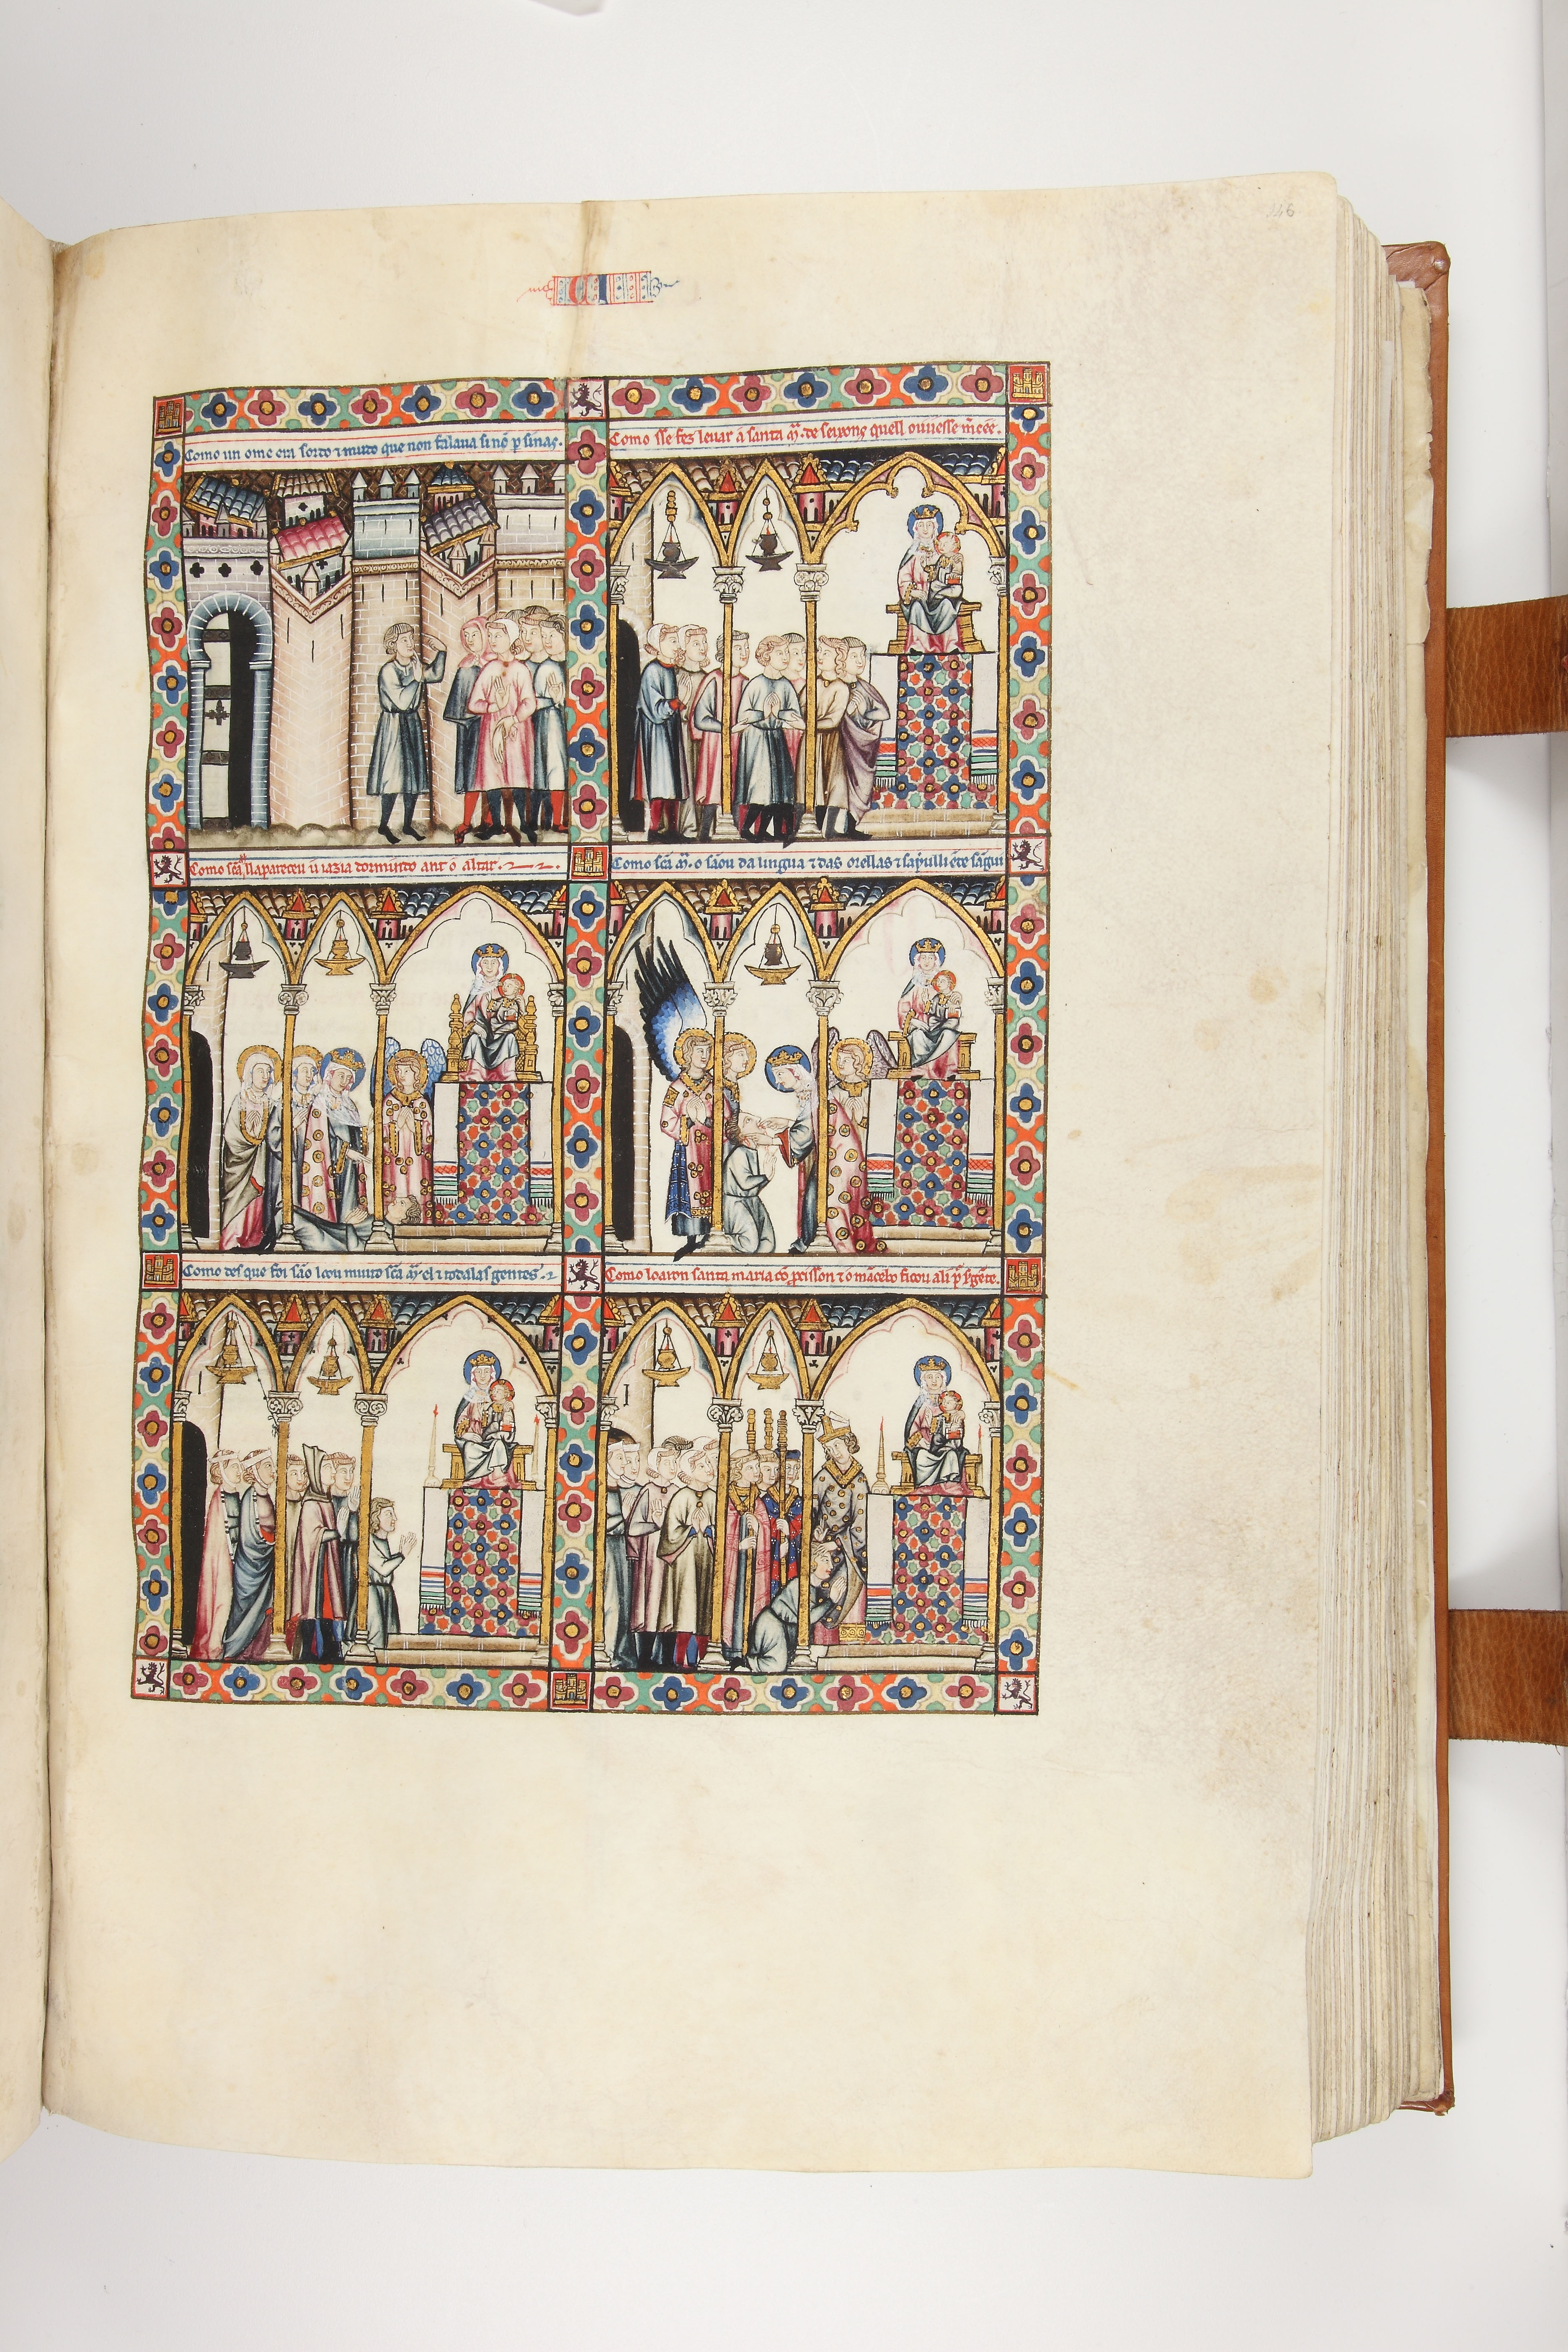 146
CI
Como un ome era sordo ⁊ mudo que non falaua si nõ p̃ sinas.
Como sse fez leuar a santa mͣ. de seixons quell ouuesse m̃cee.
Como scã mͣ ll apareceu u iazia dormindo ant o altar.
Como scã mͣ. o sãou da lingua ⁊ das orellas ⁊ sayulli ende sãgui
Como des que foi são loou muito scã mͣ el ⁊ todalas gentes.
Como loaron santa maria cõ p̃cisson ⁊ o mãcebo ficou ali p̃ s̃gẽte.